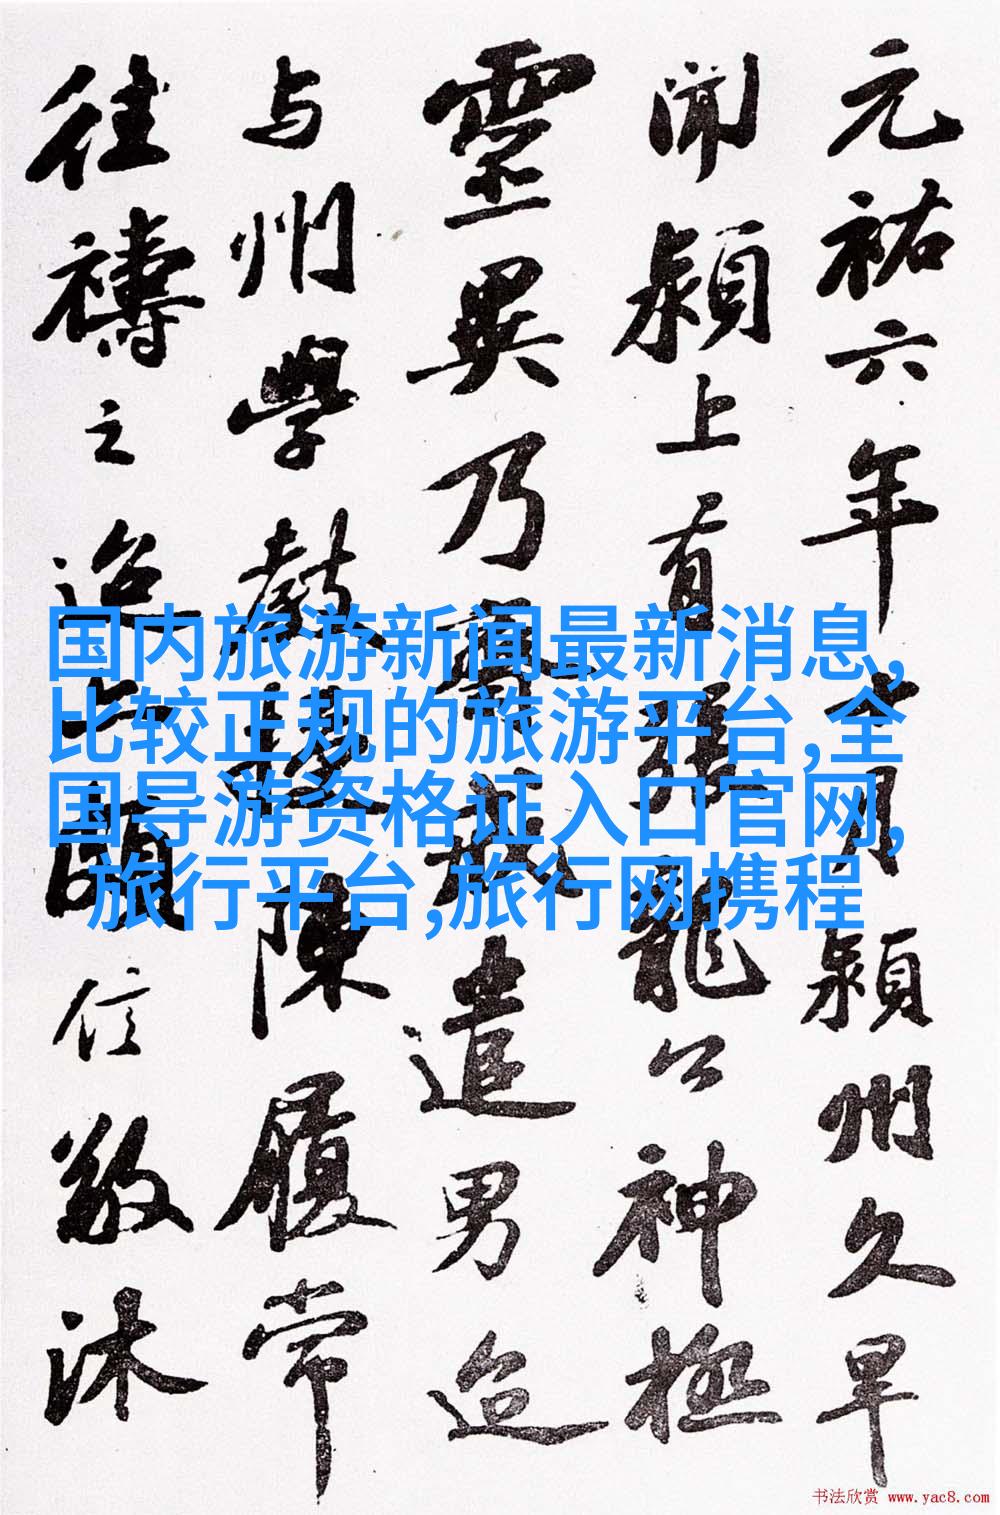 元祐六年十月潁州久旱
闻潁上有張龍公神極
靈異乃齋戒遣男迨
与州學教授陳履常
往禱之迨亦頗信敬沐
国内旅游新闻最新消息,
比较正规的旅游平台,全
国导游资格证入口官网,
旅行平台,旅行网携程
书法欣赏 www.yac8.com